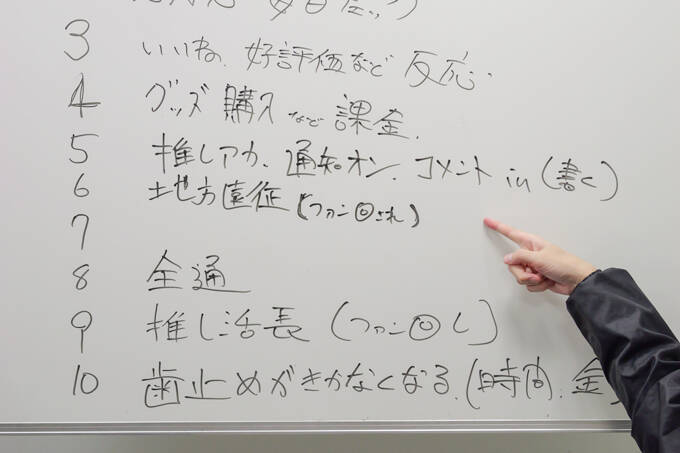 3 いいね、好評価など 反応
4 グッズ購入 など 課金
5 推しアカ、通知オン、コメント in(書く)
6 地方遠征(ファン◎され)
7
8 全通
9 推し活長(ファン◎し)
10 歯止めがきかなくなる、(時間、金